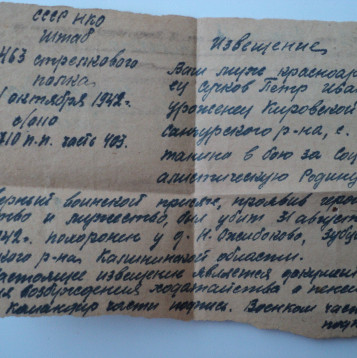 СССР НКО
Штаб
463 стрелкового
полка
1 октября 1942г.
с/опо
710 п.п. часть 403.
Извещение
Ваш муж красноар
ец Сучков Петр Ива
уроженец Кировской
санчурского р-на, с.
танино в бою за Соц
алистическую Родину
ерный воинской присяге, проявив геро
ство и мужество, был убит 31 август
942г. похоронен у д. Н. Ожибоково, Зубц
ского р-на Калининской области.
астоящее извещение является докумен
я возбуждения ходатайства о пенси
Командир части подпись. Военком част
подп